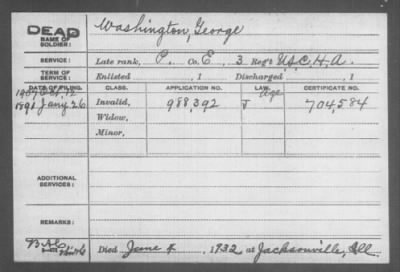 DEAD
NAME OF SOLDIER:
Washington, George
SERVICE:
Late rank, P. Co. E, 3 Reg't U.S.C.H.A.
TERM OF SERVICE:
Enlisted , 1 Discharged , 1
DATE OF FILING. CLASS. APPLICATION NO. LAW. CERTIFICATE NO.
1907 12 Age
1891 Jany 26 Invalid, 988,392 J 704,584
Widow,
Minor,
ADDITIONAL SERVICES:
REMARKS:
Died June 4, 1932 at Jacksonville, Ill.